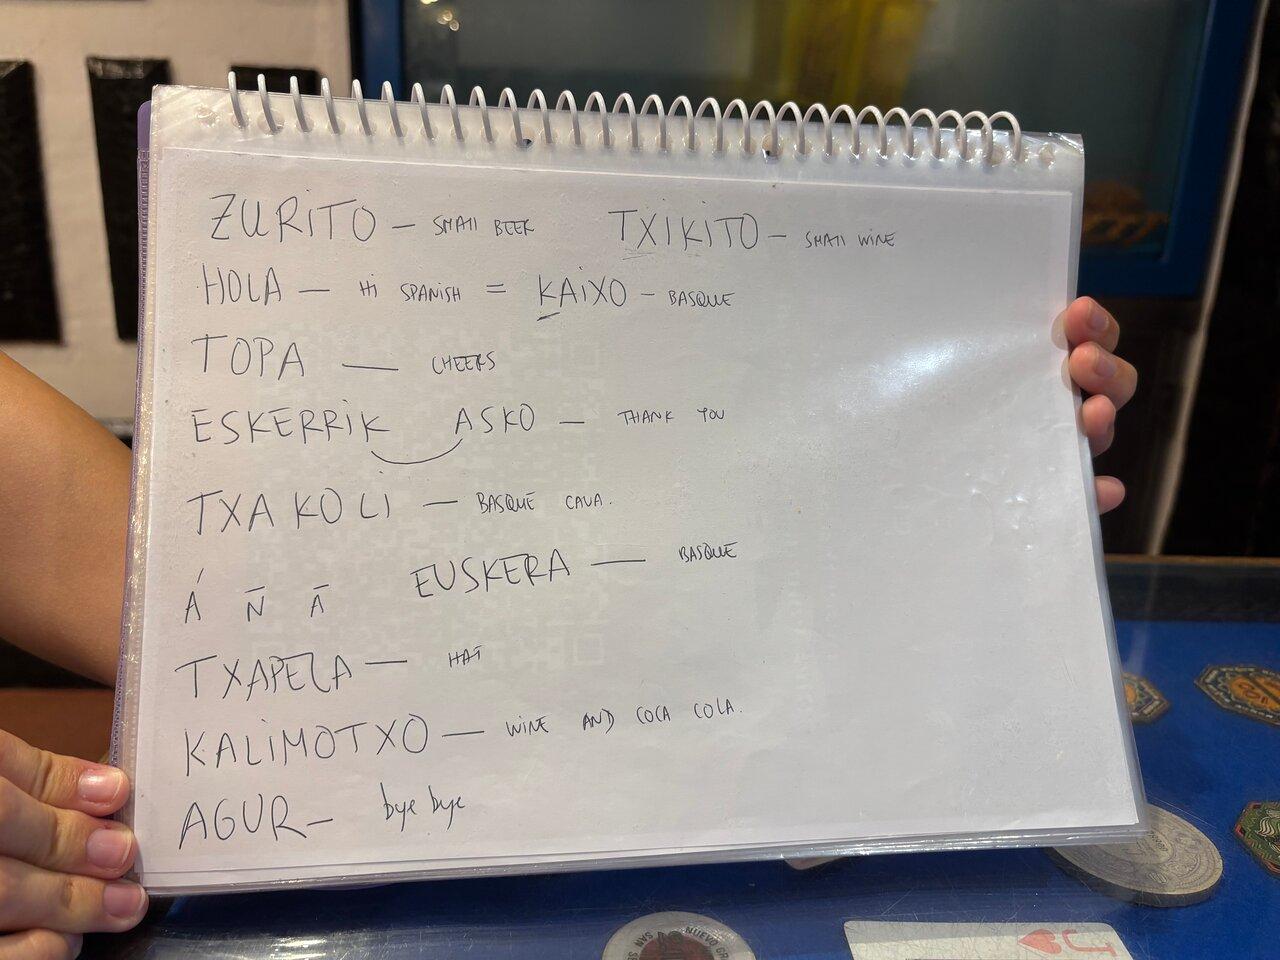 ZURITO — SMALL BEER TXIKITO — SMALL WINE
HOLA — Hi SPANISH = KAIXO — BASQUE
TOPA — CHEERS
ESKERRIK ASKO — THANK YOU
TXAKOLI — BASQUE CAVA.
Á N̄ Ā EUSKERA — BASQUE
TXAPELA — HAT
KALIMOTXO — WINE AND COCA COLA.
AGUR — bye bye
NUEVO
J